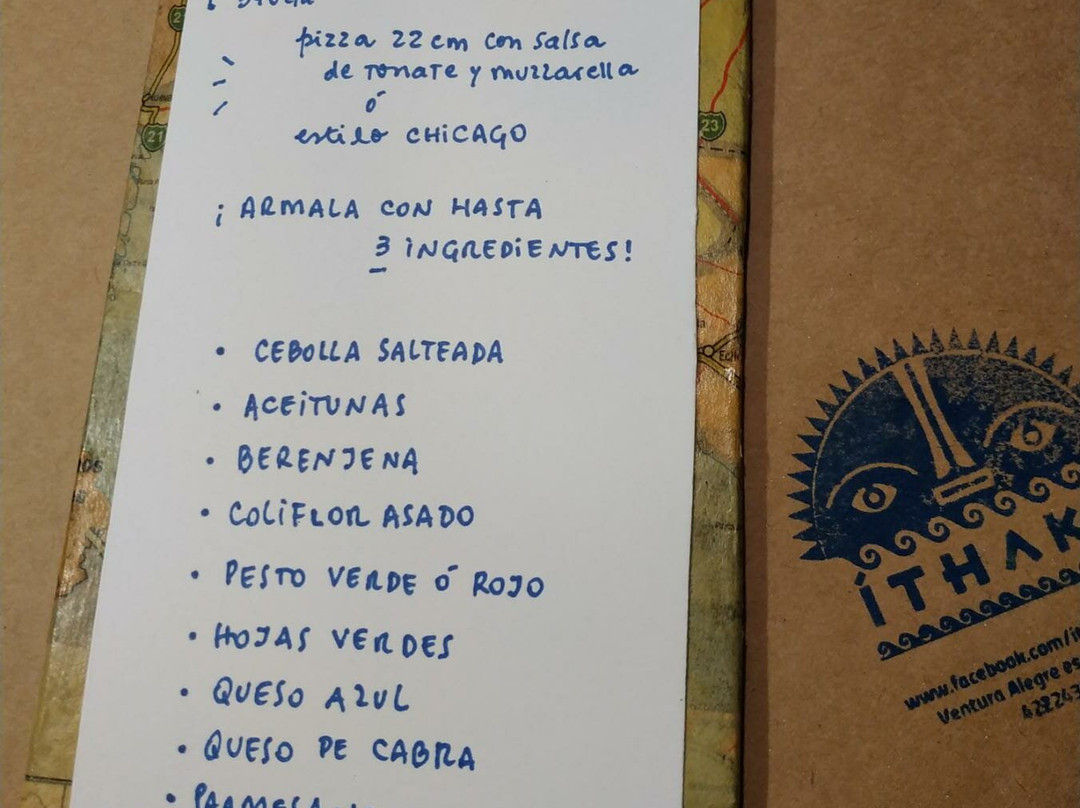 pizza 22 cm con salsa
de tomate y muzzarella
ó
estilo CHICAGO
¡ ARMALA CON HASTA
3 INGREDIENTES!
• CEBOLLA SALTEADA
• ACEITUNAS
• BERENJENA
• COLIFLOR ASADO
• PESTO VERDE Ó ROJO
• HOJAS VERDES
• QUESO AZUL
• QUESO DE CABRA
21
21
23
ÍTHAK
www.facebook.com/i
Ventura Alegre es